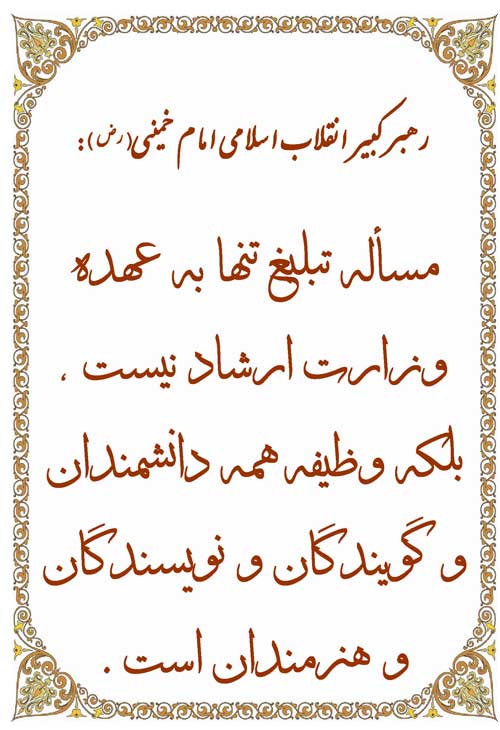 رهبر کبیر انقلاب اسلامی امام خمینی (رض) :
مسأله تبلیغ تنها به عهده
وزارت ارشاد نیست ،
بلکه وظیفه همه دانشمندان
و گویندگان و نویسندگان
و هنرمندان است .